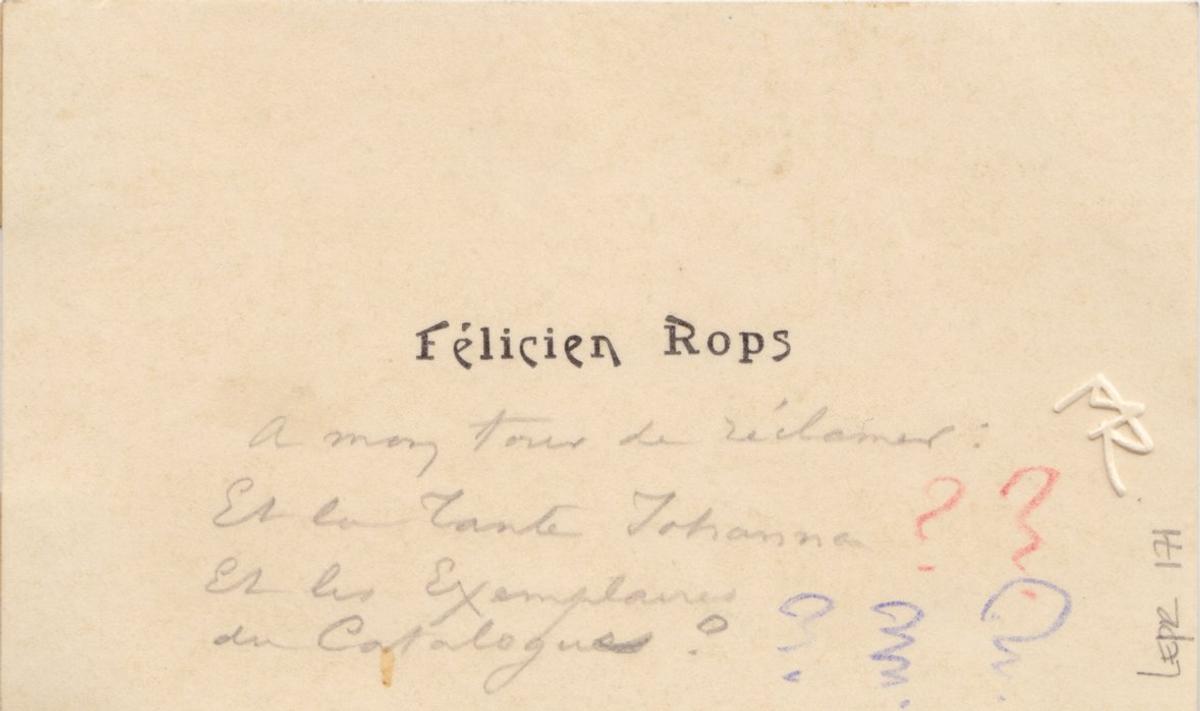 Félicien Rops
A mon tour de réclamer :
Et la Tante Johanna ? ?
Et les Exemplaires
du Catalogue ? ? ? ?
LEPR 171